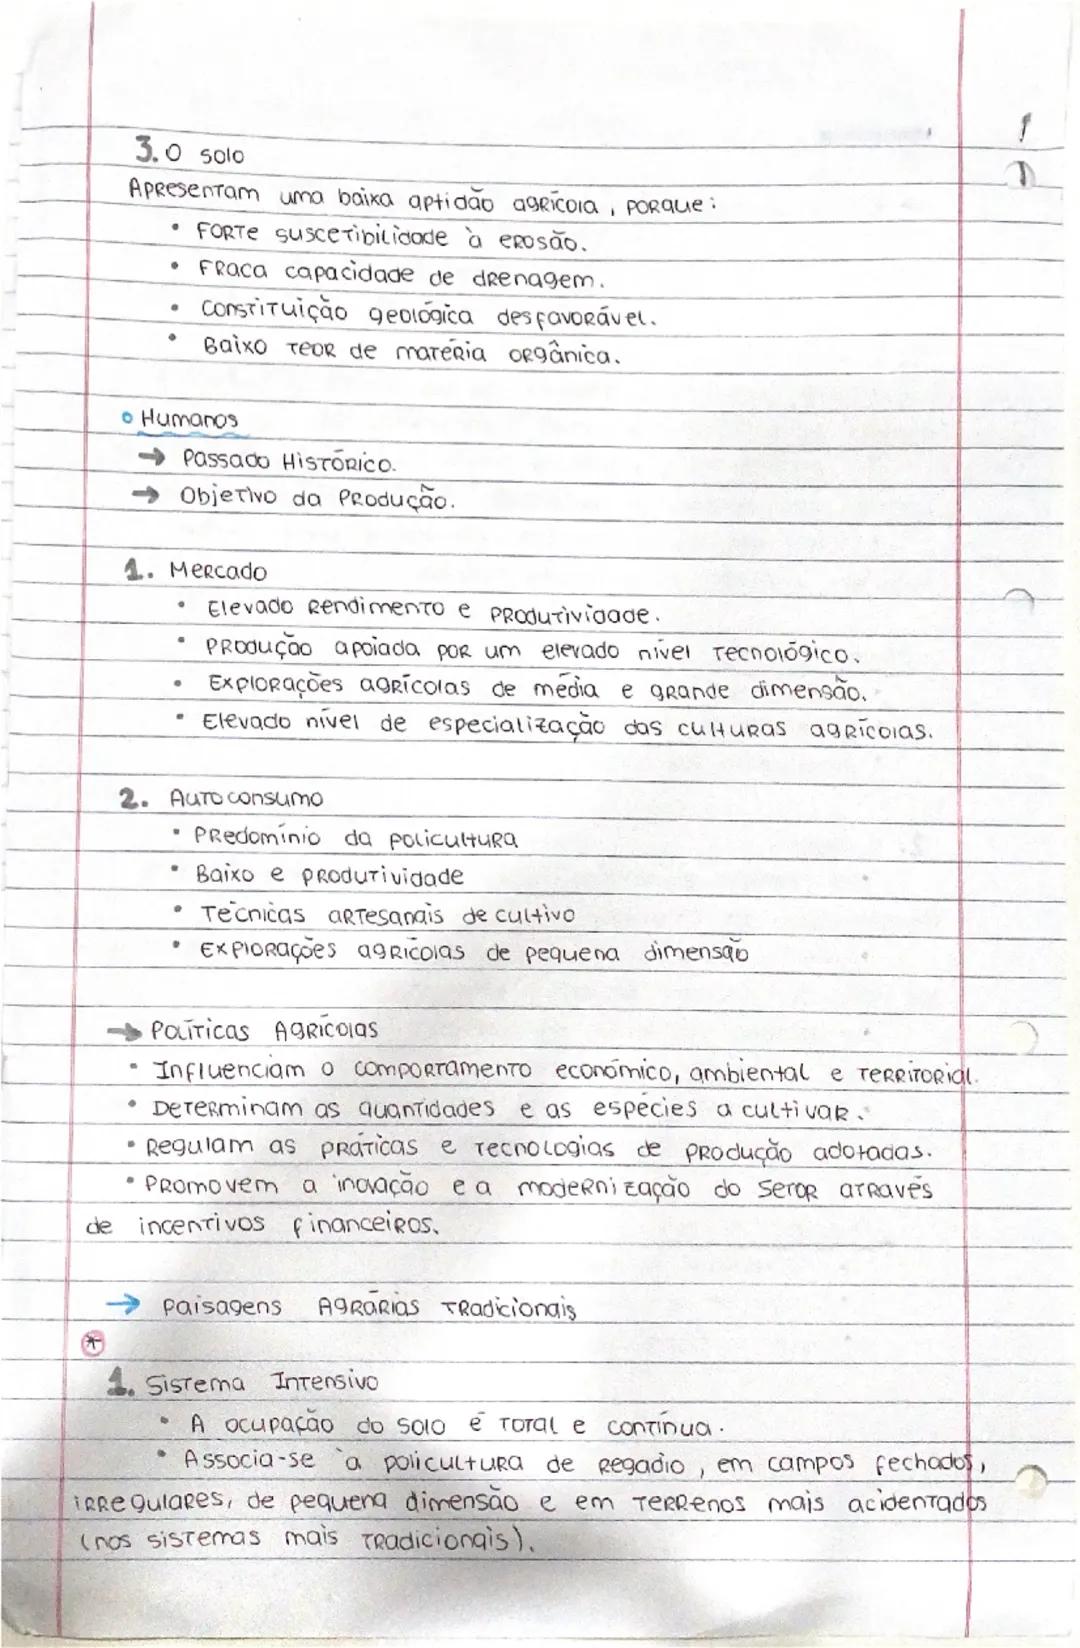 3. O solo
Apresentam uma baixa aptidão agrícola, porque:
• Forte suscetibilidade à erosão.
• Fraca capacidade de drenagem.
• Constituição geológica desfavorável.
• Baixo teor de matéria orgânica.
Humanos
→ Passado Histórico.
→ Objetivo da Produção.
1. Mercado
• Elevado Rendimento e produtividade.
• Produção apoiada por um elevado nível tecnológico.
• Explorações agrícolas de média e grande dimensão.
• Elevado nível de especialização das culturas agrícolas.
2. Autoconsumo
• Predomínio da policultura
• Baixo e produtividade
• Técnicas artesanais de cultivo
• Explorações agrícolas de pequena dimensão
→ Políticas Agrícolas
• Influenciam o comportamento económico, ambiental e territorial.
• Determinam as quantidades e as espécies a cultivar.
• Regulam as práticas e tecnologias de produção adotadas.
• Promovem a inovação e a modernização do setor através
de incentivos financeiros.
→ Paisagens Agrárias Tradicionais
*
1. Sistema Intensivo
• A ocupação do solo é total e contínua.
• Associa-se à policultura de regadio, em campos fechados,
irregulares, de pequena dimensão e em terrenos mais acidentados
(nos sistemas mais tradicionais).